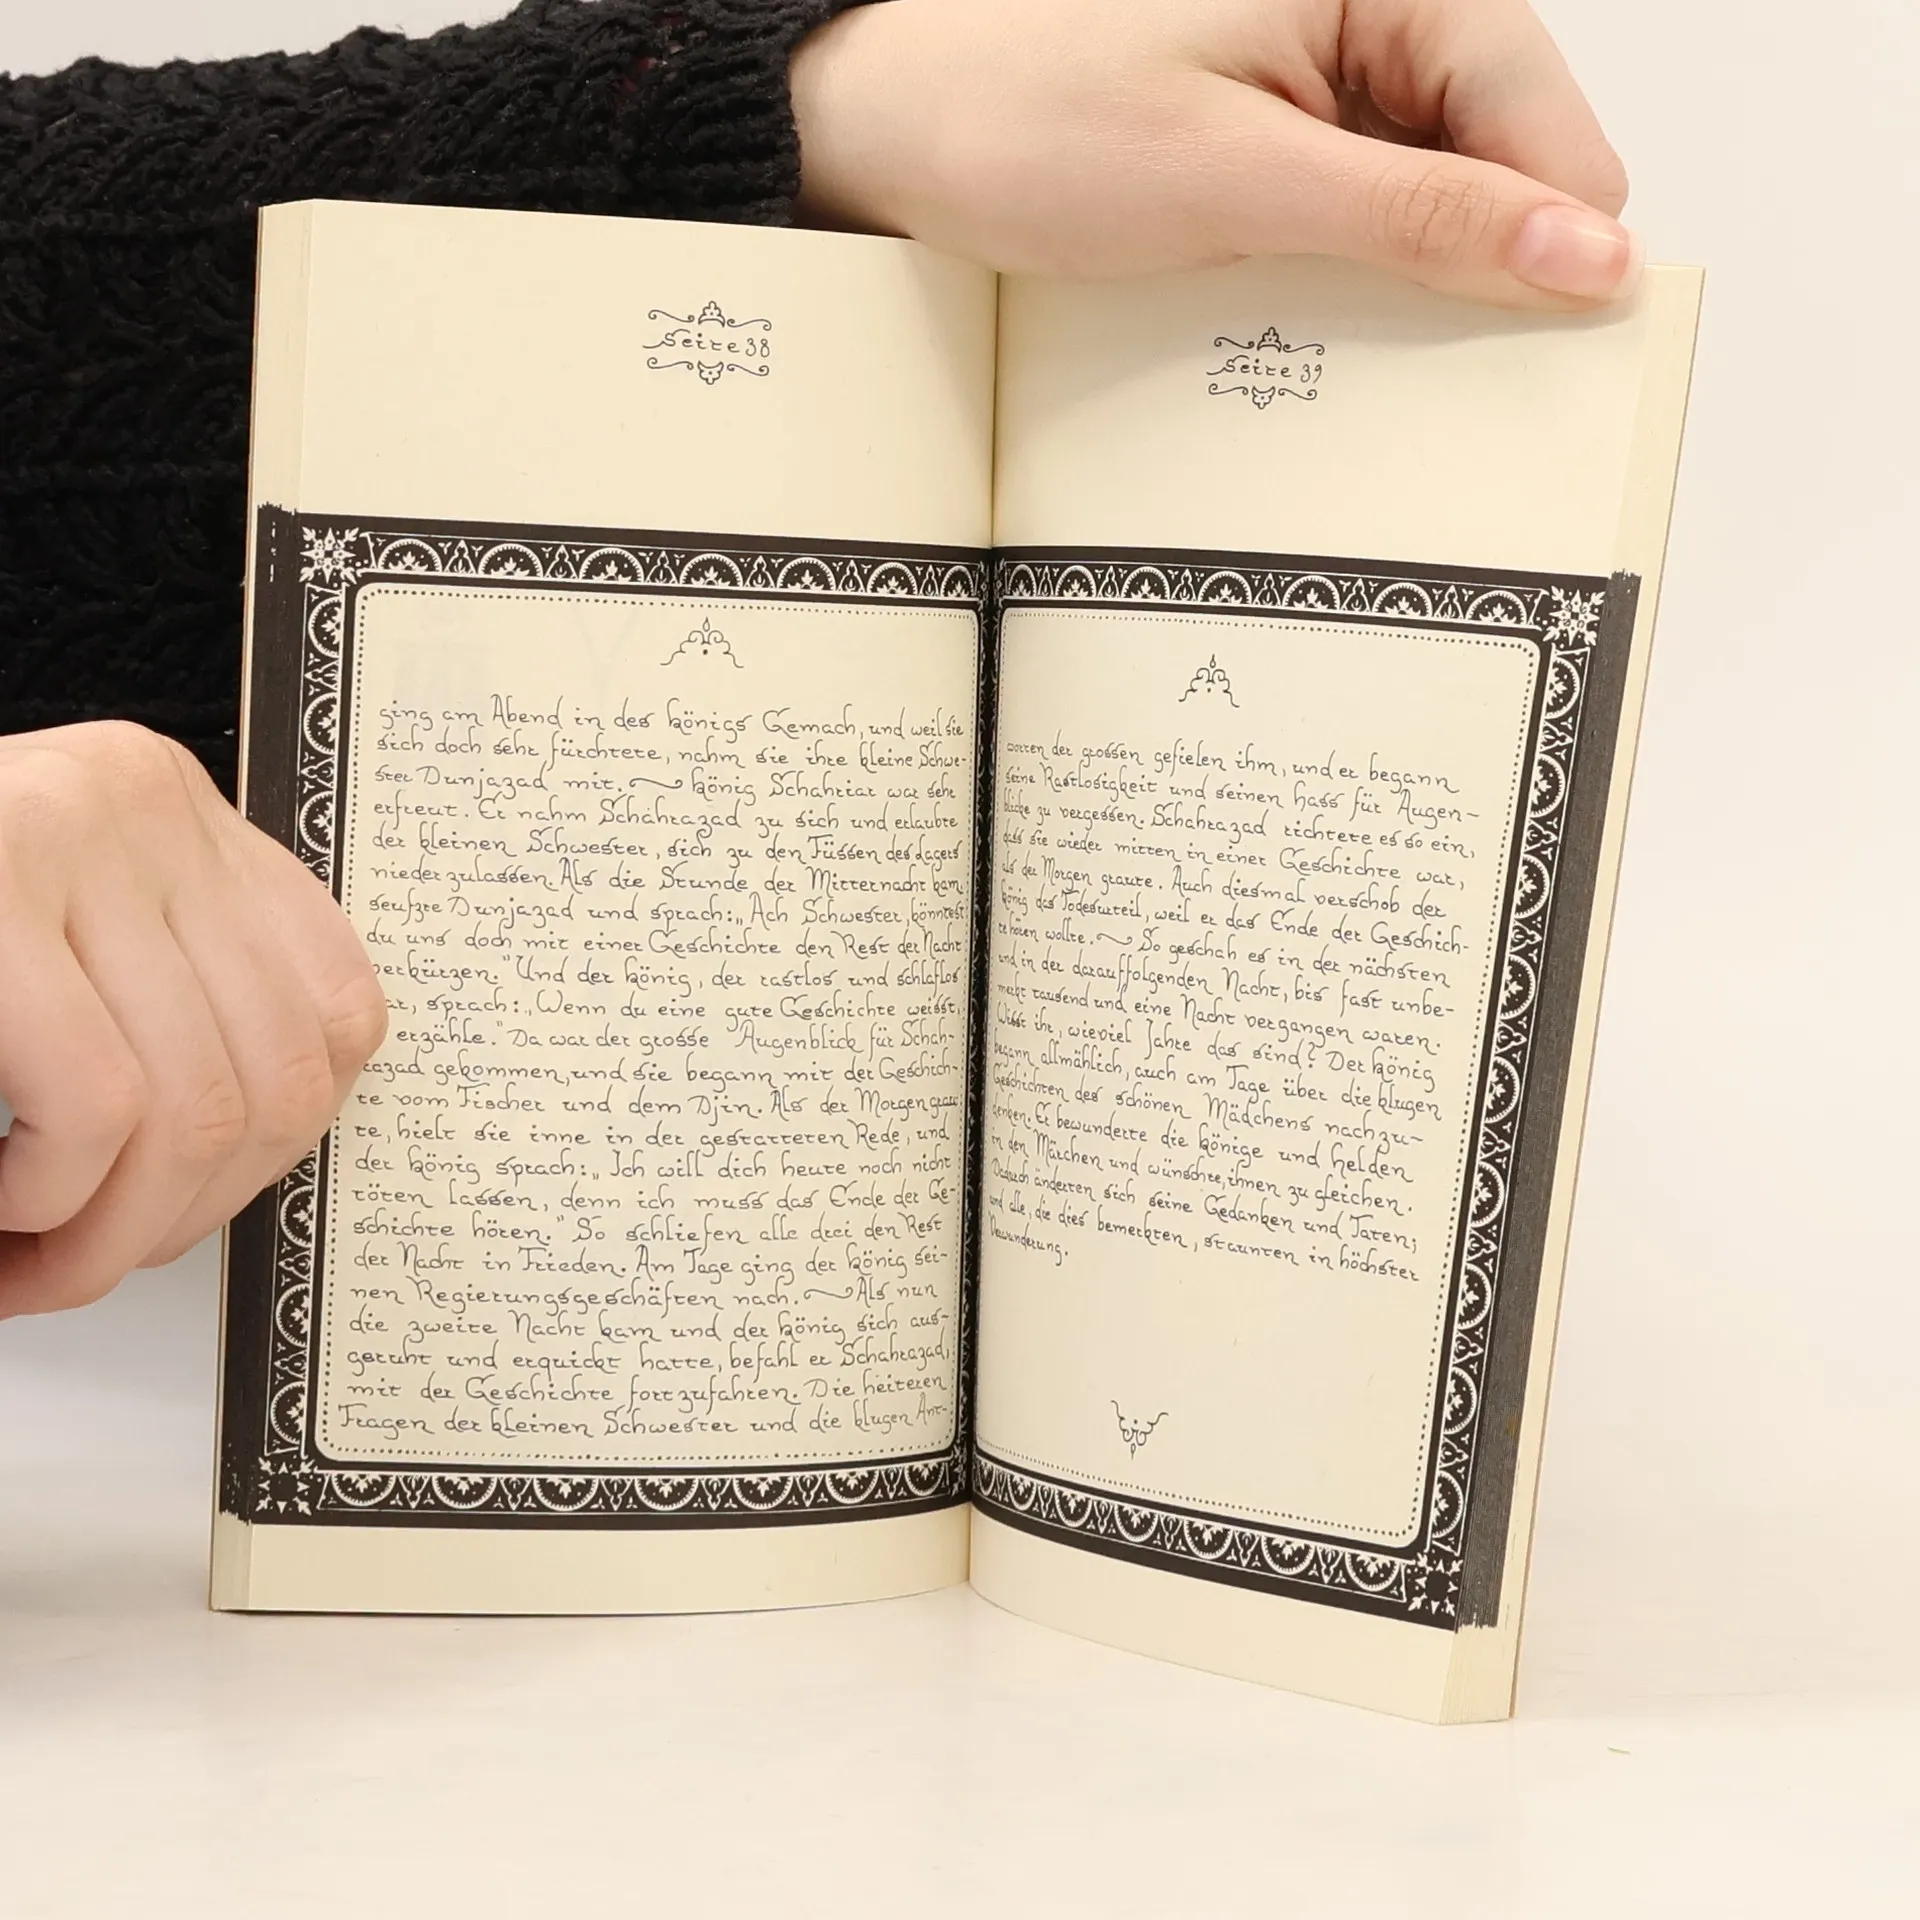 Seite 38
ging am Abend in des königs Gemach, und weil sie
sich doch sehr fürchtete, nahm sie ihre kleine Schwe-
ster Dunjazad mit. könig Schahriar war sehr
erfreut. Er nahm Schahrazad zu sich und erlaubte
der kleinen Schwester, sich zu den Füssen des Lagers
niederzulassen. Als die Stunde der Mitternacht kam,
seufzte Dunjazad und sprach: „Ach Schwester, könntest
du uns doch mit einer Geschichte den Rest der Nacht
verkürzen." Und der könig, der rastlos und schlaflos
sprach: „Wenn du eine gute Geschichte weisst,
erzähle." Da war der grosse Augenblick für Schah-
razad gekommen, und sie begann mit der Geschich-
te vom Fischer und dem Djin. Als der Morgen grau-
te, hielt sie inne in der gestatteten Rede, und
der könig sprach: „Ich will dich heute noch nicht
töten lassen, denn ich muss das Ende der Ge-
schichte hören." So schliefen alle drei den Rest
der Nacht in Frieden. Am Tage ging der könig sei-
nen Regierungsgeschäften nach. Als nun
die zweite Nacht kam und der könig sich aus-
geruht und erquickt hatte, befahl er Schahrazad,
mit der Geschichte fortzufahren. Die heiteren
Fragen der kleinen Schwester und die klugen Ant-
Seite 39
worten der grossen gefielen ihm, und er begann
seine Rastlosigkeit und seinen hass für Augen-
blicke zu vergessen. Schahrazad richtete es so ein,
dass sie wieder mitten in einer Geschichte war,
als der Morgen graute. Auch diesmal verschob der
könig das Todesurteil, weil er das Ende der Geschich-
te hören wollte. So geschah es in der nächsten
und in der darauffolgenden Nacht, bis fast unbe-
merkt tausend und eine Nacht vergangen waren.
Wisst ihr, wieviel Jahre das sind? Der könig
begann allmählich, auch am Tage über die klugen
Geschichten des schönen Mädchens nachzu-
denken. Er bewunderte die könige und helden
in den Märchen und wünschte, ihnen zu gleichen.
Dadurch änderten sich seine Gedanken und Taten;
und alle, die dies bemerkten, staunten in höchster
Verwunderung.